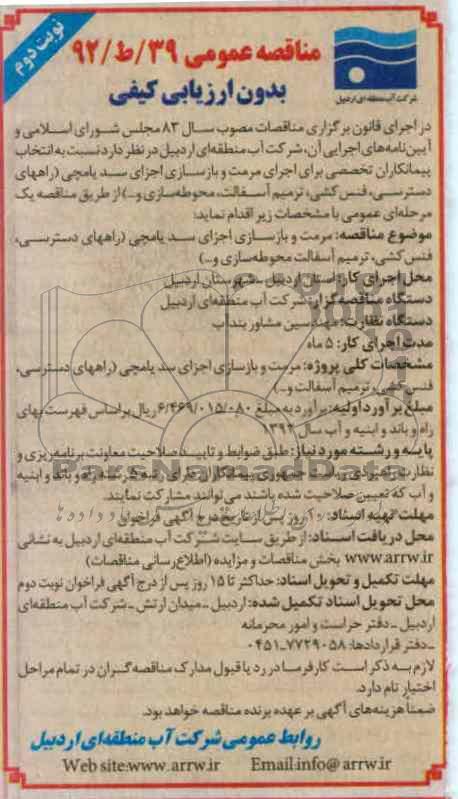 نوبت دوم
شرکت آب منطقه ای اردبیل
مناقصه عمومی ۳۹/ط/۹۲
بدون ارزیابی کیفی
در اجرای قانون برگزاری مناقصات مصوب سال ۸۳ مجلس شورای اسلامی و
آیین‌نامه‌های اجرایی آن، شرکت آب منطقه‌ای اردبیل در نظر دارد نسبت به انتخاب
پیمانکاران تخصصی برای اجرای مرمت و بازسازی اجزای سد یامچی (راههای
دسترسی، فنس کشی، ترمیم آسفالت، محوطه‌سازی و...) از طریق مناقصه یک
مرحله‌ای عمومی با مشخصات زیر اقدام نماید:
موضوع مناقصه: مرمت و بازسازی اجزای سد یامچی (راههای دسترسی،
فنس کشی، ترمیم آسفالت محوطه‌سازی و...)
محل اجرای کار: استان اردبیل - شهرستان اردبیل
دستگاه مناقصه‌گزار: شرکت آب منطقه‌ای اردبیل
دستگاه نظارت: مهندسین مشاور بنداب
مدت اجرای کار: ۵ ماه
مشخصات کلی پروژه: مرمت و بازسازی اجزای سد یامچی (راههای دسترسی،
فنس کشی، ترمیم آسفالت و...)
مبلغ برآورد اولیه: برآورد به مبلغ ۶/۴۶۹/۰۱۵/۰۸۰ ریال براساس فهرست بهای
راه و باند و ابنیه و آب سال ۱۳۹۲
پایه و رشته مورد نیاز: طبق ضوابط و تایید صلاحیت معاونت برنامه‌ریزی و
نظارت راهبردی ریاست جمهوری پیمانکاران دارای رتبه در رشته راه و باند و ابنیه
و آب که تعیین صلاحیت شده باشند می‌توانند مشارکت نمایند.
مهلت تهیه اسناد: روز پس از تاریخ درج آگهی فراخوان
محل دریافت اسناد: از طریق سایت شرکت آب منطقه‌ای اردبیل به نشانی
www.arrw.ir بخش مناقصات و مزایده (اطلاع‌رسانی مناقصات)
مهلت تکمیل و تحویل اسناد: حداکثر تا ۱۵ روز پس از درج آگهی فراخوان نوبت دوم
محل تحویل اسناد تکمیل شده: اردبیل - میدان ارتش - شرکت آب منطقه‌ای
اردبیل - دفتر حراست و امور محرمانه
- دفتر قراردادها: ۷۷۲۹۰۵۸-۰۴۵۱
لازم به ذکر است کارفرما در رد یا قبول مدارک مناقصه‌گران در تمام مراحل
اختیار تام دارد.
ضمناً هزینه‌های آگهی بر عهده برنده مناقصه خواهد بود.
روابط عمومی شرکت آب منطقه‌ای اردبیل
Web site:www.arrw.ir Email:info@arrw.ir
ParsNamadData